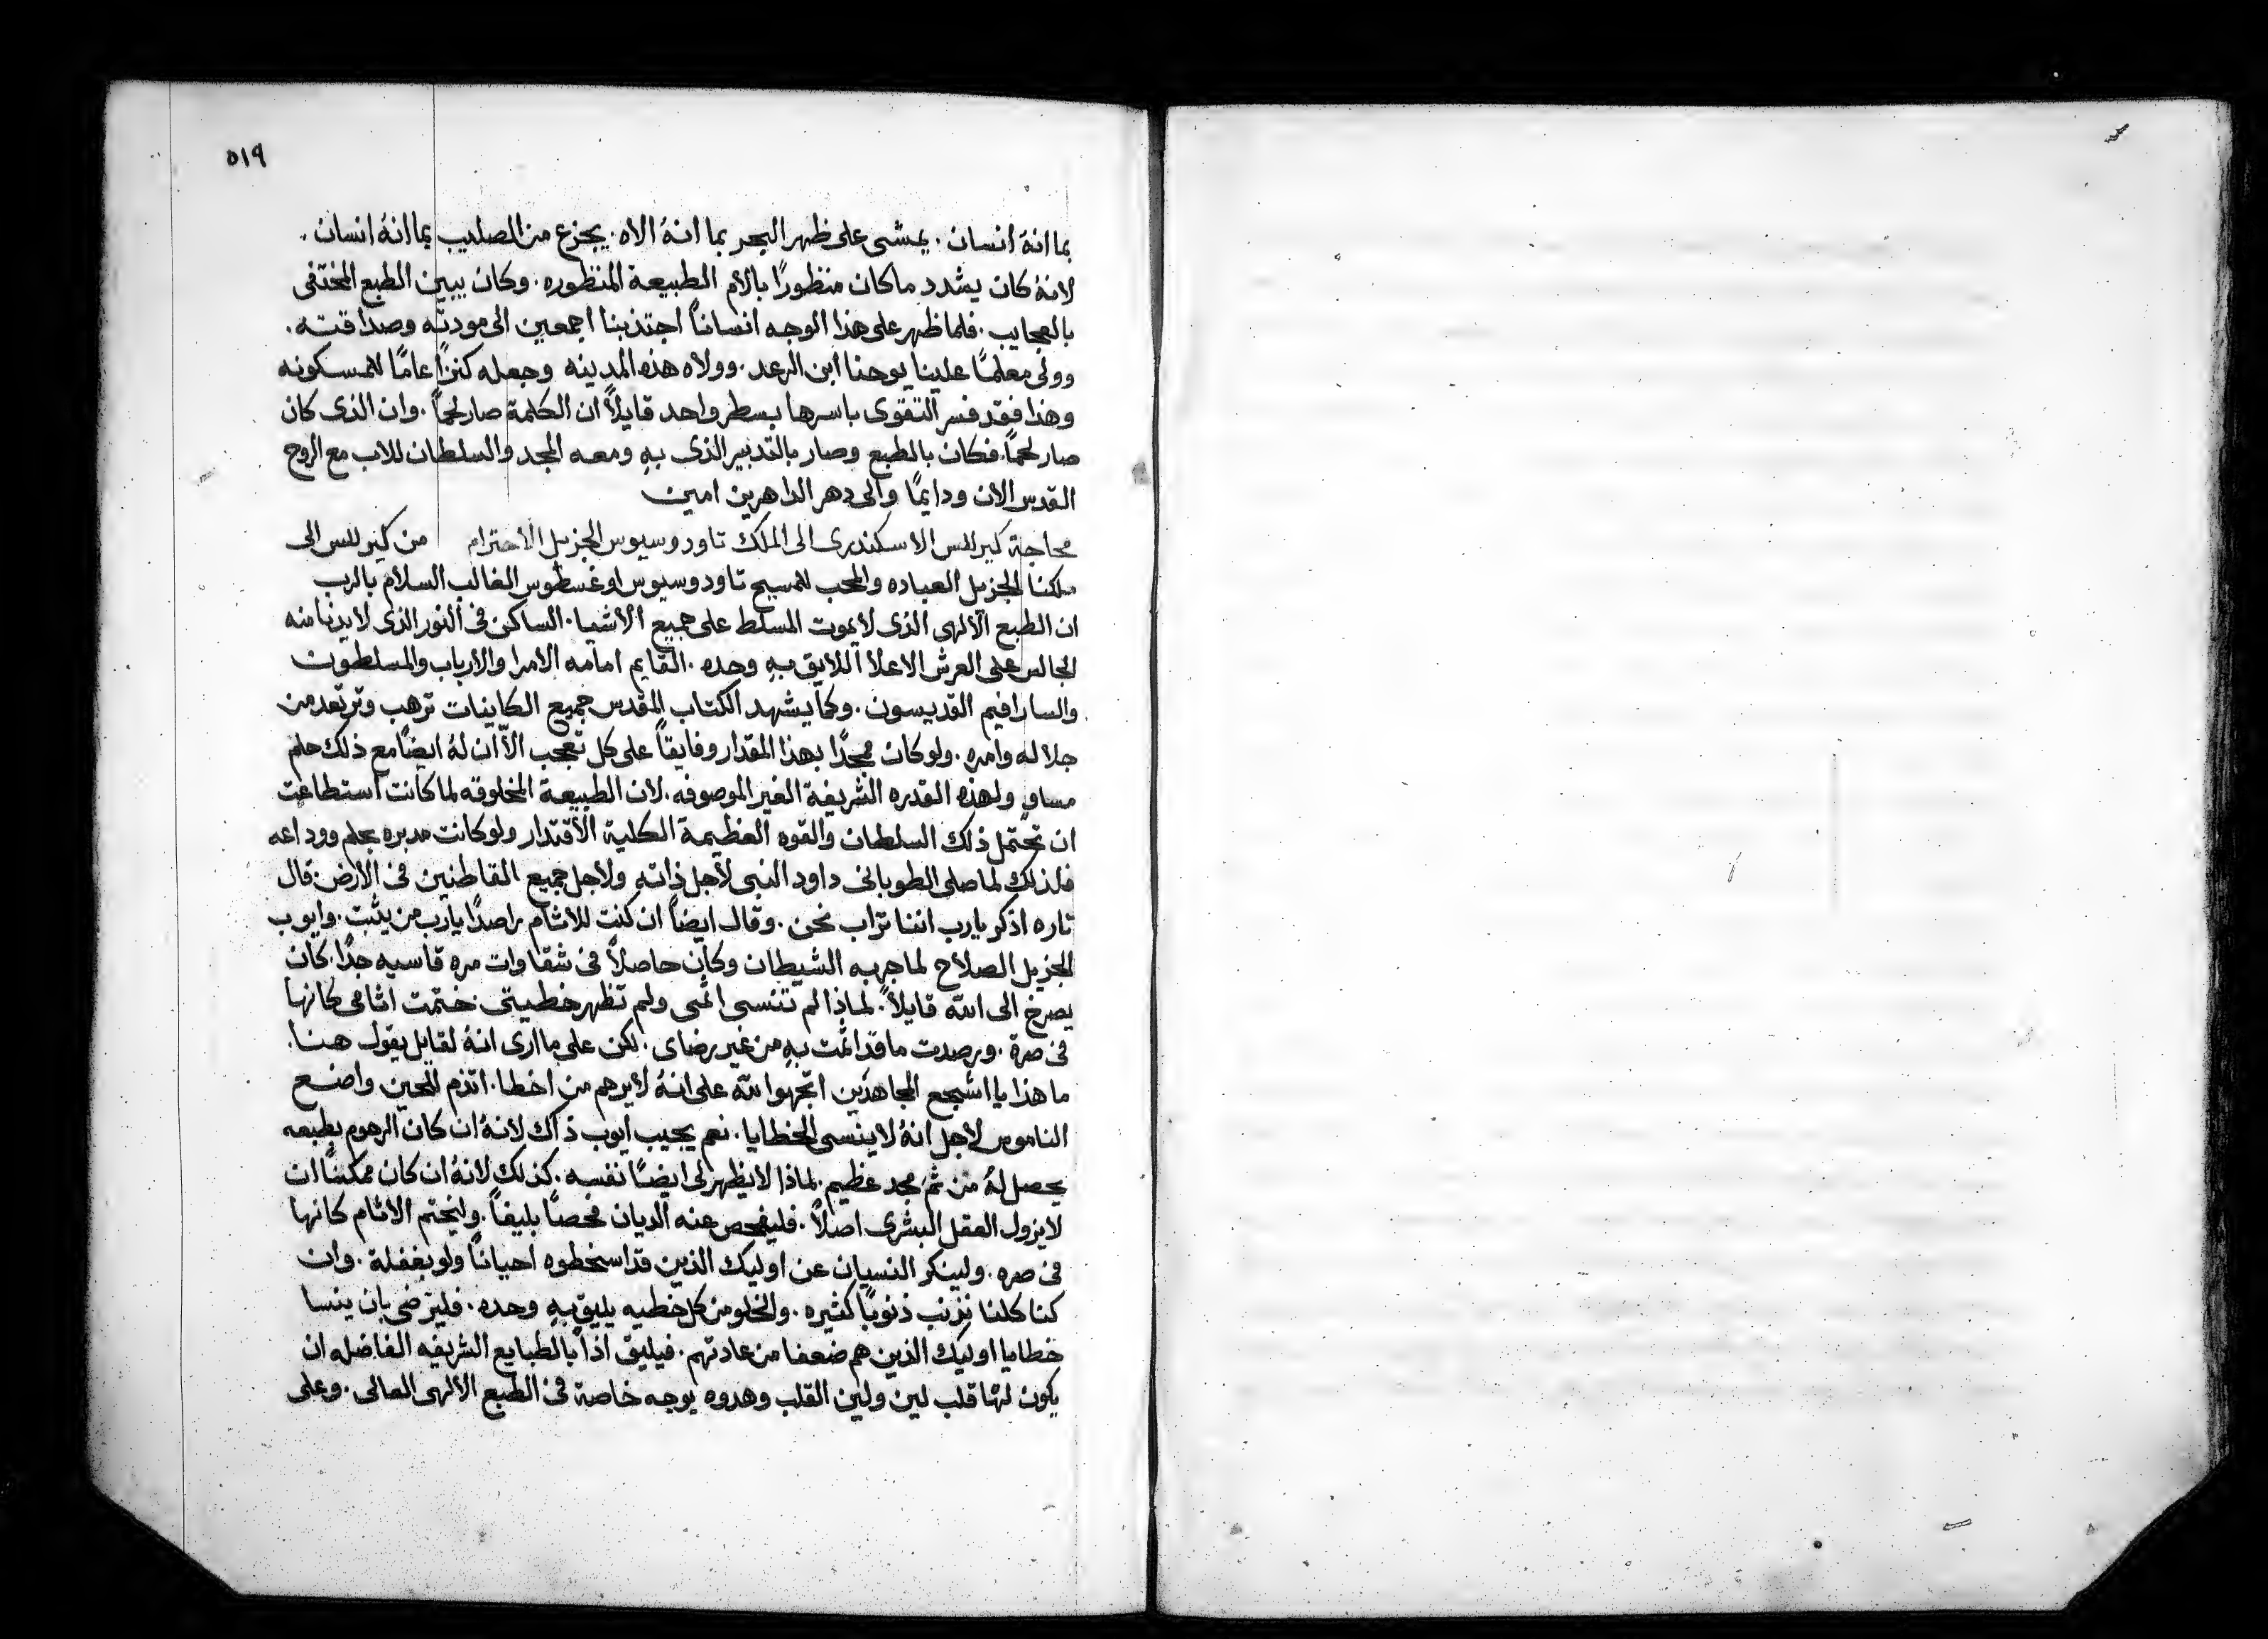 ٥١٩
بما انهُ انسان . يمشى على ظهر البحر بما انهُ الاه . يجزع من الصليب بما انهُ انسان .
لانهُ كان يشدد ما كان منظورًا بالام الطبيعة المنظوره . وكان يبين الطبع المختفى
بالعجايب . فلما ظهر على هذا الوجه انسانًا اجتذبنا اجمعين الى مودته وصداقته .
وولى معلمًا علينا يوحنا ابن الرعد . وولاه هذه المدينه وجعله كنزًا عامًا للمسكونه
وهذا فقد فسر التقوى باسرها بسطر واحد قايلاً ان الكلمة صار لحمًا . وان الذى كان
صار لحمًا . فكان بالطبع وصار بالتدبير الذى بهِ ومعه المجد والسلطان للاب مع الروح
القدس الان ودايمًا والى دهر الداهرين امين
محاجة كيرللس الاسكندرى الى الملك تاودوسيوس الجزيل الاحترام من كيرللس الى
ملكنا الجزيل العباده والمحب للمسيح تاودوسيوس اوغسطوس الغالب السلام بالرب
ان الطبع الالهى الذى لا يموت المسلط على جميع الاشيا . الساكن فى النور الذى لا يدنا منه
الجالس على العرش الاعلا اللايق بهِ وحده . القايم امامه الامرا والارباب والمسلطون
والسارافيم القديسون . وكما يشهد الكتاب المقدس جميع الكاينات ترهب وترتعد من
جلاله وامره . ولو كان ممجدًا بهذا المقدار وفايقًا على كل تعجب الاّ ان لهُ ايضًا مع ذلك حلم
مساوٍ ولهذه القدره الشريفة الغير الموصوفه . لان الطبيعة المخلوقه لما كانت استطاعت
ان تحتمل ذلك السلطان والقوه العظيمة الكلية الاقتدار ولو كانت مدبره بحلم ووداعه
فلذلك لما صلى الطوبانى داود النبى لاجل ذاتهِ ولاجل جميع القاطنين فى الارض . قال
تاره اذكر يا رب اننا تراب نحن . وقال ايضًا ان كنت للاثام راصدًا يا رب من يثبت . وايوب
الجزيل الصلاح لما جربه الشيطان وكان حاصلاً فى شقاوات مره قاسيه جدًا . كان
يصرخ الى الله قايلاً . لماذا لم تنسى اثمى ولم تظهر خطيتى . ختمت اثامى كانها
فى صرة . ورصدت ما قد اثمت بهِ من غير رضاى . لكن على ما ارى انهُ لقايل يقول هنا .
ما هذا يا اشجع المجاهدين اتجهوا لله على انهُ لا يرحم من اخطا . اتذم للحين واضع
الناموس لاجل انهُ لا ينسى الخطايا . نعم يجيب ايوب ذاك لانهُ ان كان الرحوم بطبعه
يحصل لهُ من ثمَ مجد عظيم . لماذا لا يظهر لى ايضًا نفسه . كذلك لانهُ ان كان ممكنًا ان
لا يزول العقل البشرى اصلاً . فليفحص عنه الديان فحصًا بليغًا . وليختم الاثام كانها
فى صره . ولينكر النسيان عن اوليك الذين قد اسخطوه احيانًا ولو بغفلة . وان
كنا كلنا نذنب ذنوبًا كثيره . والخلو من كل خطيه يليق بهِ وحده . فليرضى بان ينسا
خطايا اوليك الذين هم ضعفا من عادتهم . فيليق اذاً بالطبايع الشريفه الفاضله ان
يكون لها قلب لين ولين القلب وهدوه يوجه خاصة فى الطبع الالهى العالى . وعلى